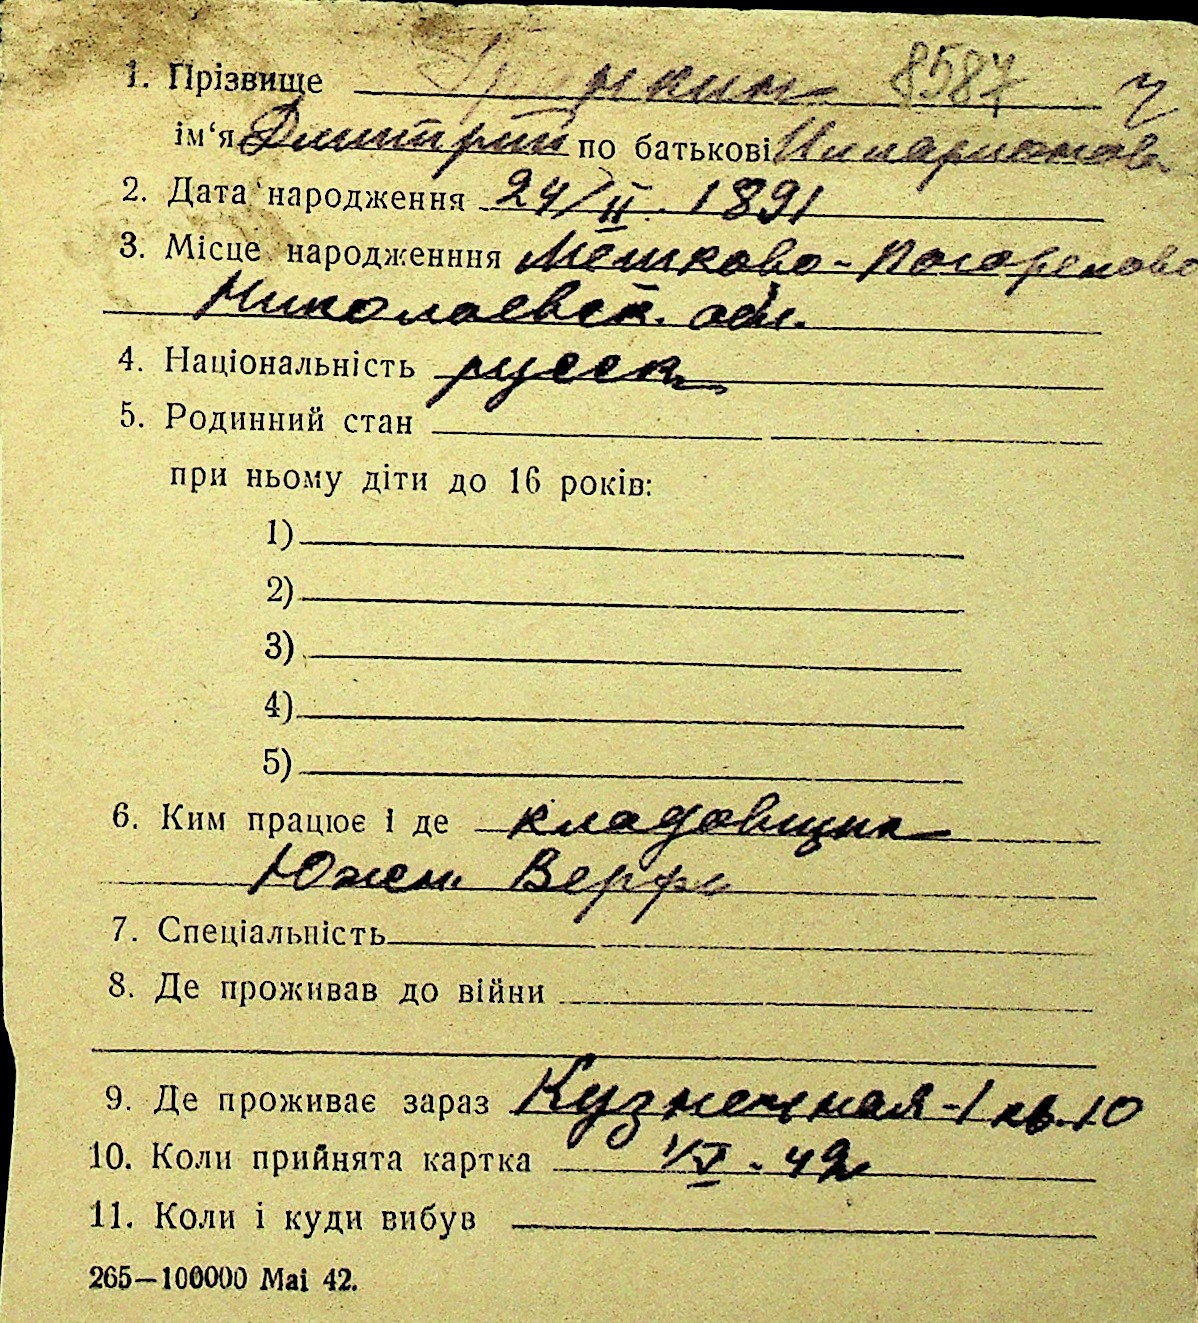 1. Прізвище 8587
ім‘я Дмитрий по батькові Илларионов.
2. Дата народження 24/II. 1891
3. Місце народженння Мешково-Погорелово
Николаевск. обл.
4. Національність русск
5. Родинний стан
при ньому діти до 16 років:
1)
2)
3)
4)
5)
6. Ким працює і де кладовщик
Южн. Верфь
7. Спеціальність
8. Де проживав до війни
9. Де проживає зараз Кузнечная-1 кв. 10
10. Коли прийнята картка 42
11. Коли і куди вибув
265—100000 Маі 42.